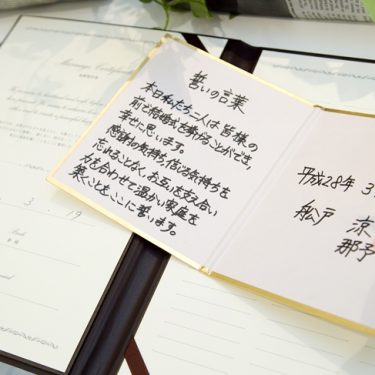 誓いの言葉
本日私たち二人は皆様の
前で結婚式を挙げることができ、
幸せに思います。
感謝の気持ち、信じる気持ちを
忘れることなく、お互いを支え合い
力を合わせて温かい家庭を
築くことをここに誓います。
平成28年 3
船戸 涼
那予
Marriage Certificate
3 . 19